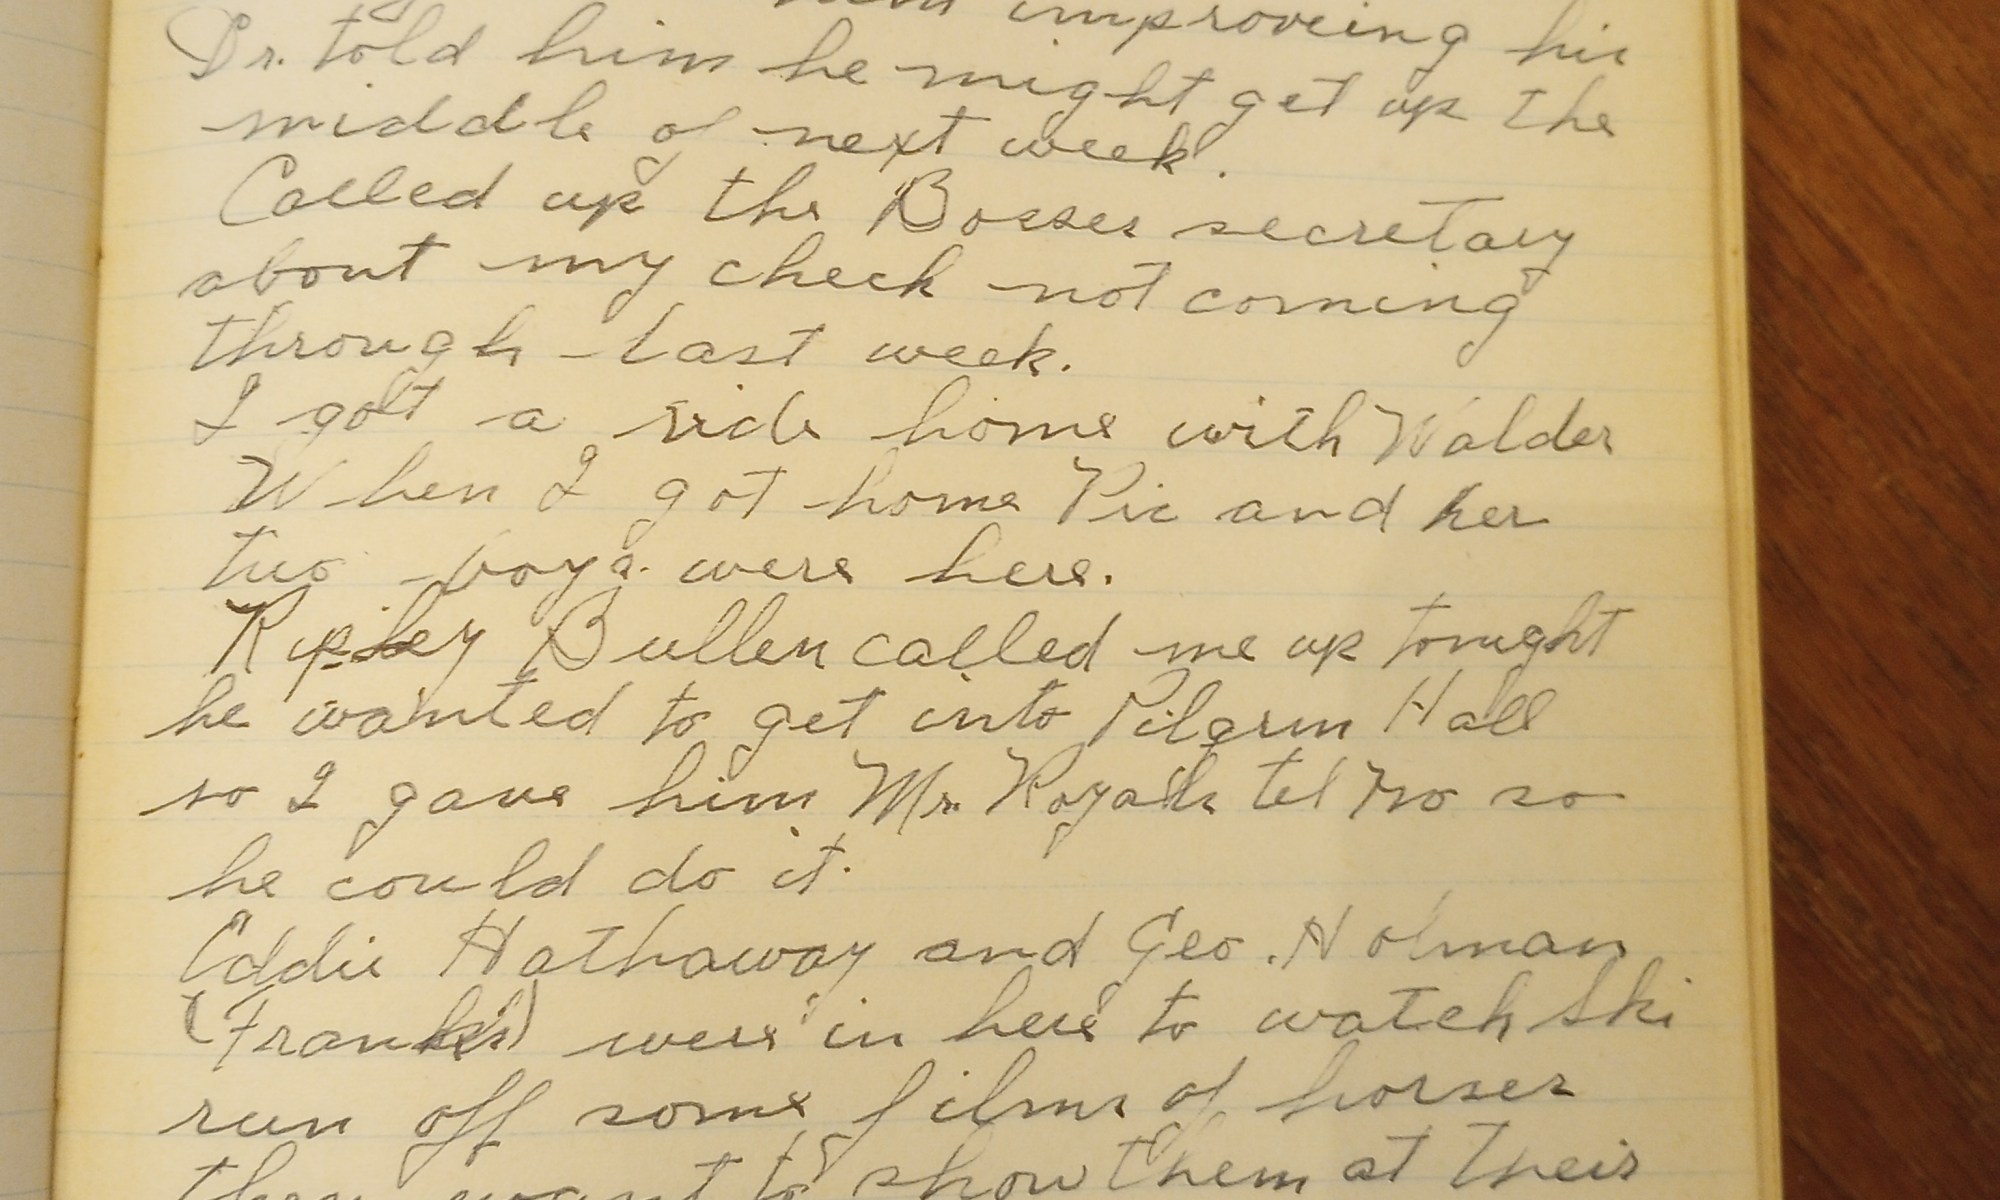 improveing his
Dr. told him he might get up the
middle of next week.
Called up the Bosses secretary
about my check not coming
through last week.
I got a ride home with Walder
When I got home Pic and her
two boys. were here.
Ripley Bullen called me up tonight
he wanted to get into Pilgrim Hall
so I gave him Mr. tel No so
he could do it.
Eddie Hathaway and Geo. Holman
(Frank's) were in here to watch Ski
run off some films of horses
they want to show them at their